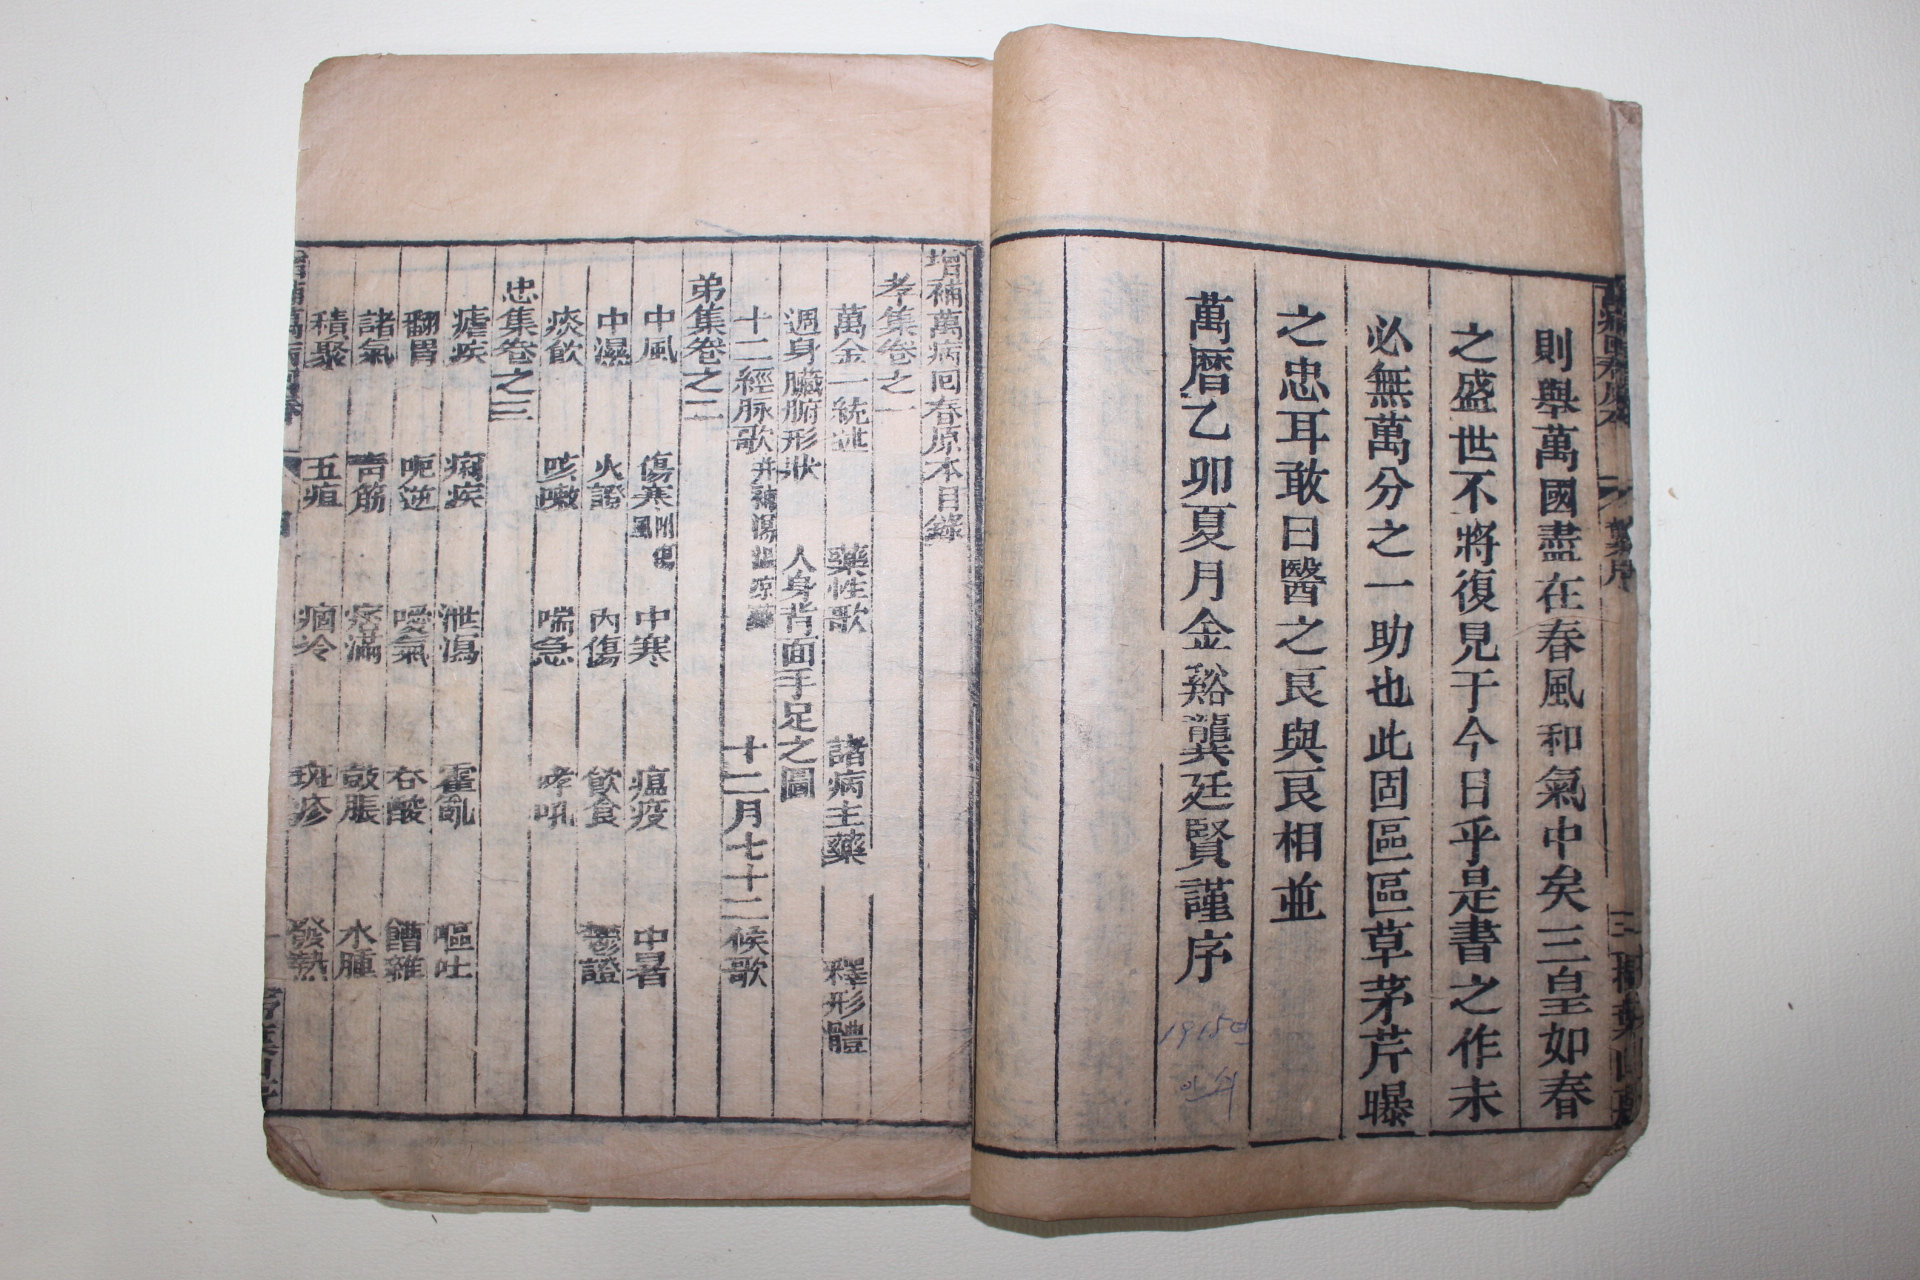 則舉萬國盡在春風和氣中矣三皇如春
之盛世不將復見于今日乎是書之作未
必無萬分之一助也此固區區草茅芹曝
之忠耳敢曰醫之良與良相並
萬曆乙卯夏月金谿龔廷賢謹序
1915년
인쇄
增補萬病回春原本目錄
孝集卷之一
萬金一統述 藥性歌 諸病主藥 釋形體
週身臟腑形狀 人身背面手足之圖
十二經脉歌 并補瀉溫凉藥 十二月七十二候歌
弟集卷之二
中風 傷寒 附傷風 中寒 瘟疫 中暑
中濕 火證 內傷 飮食 鬱證
痰飮 咳嗽 喘急 哮吼
忠集卷之三
瘧疾 痢疾 泄瀉 霍亂 嘔吐
翻胃 呃逆 噯氣 吞酸 饋雜
諸氣 靑筋 痞滿 鼓脹 水腫
積聚 五疸 痼冷 斑疹 發熱
增補萬病回春